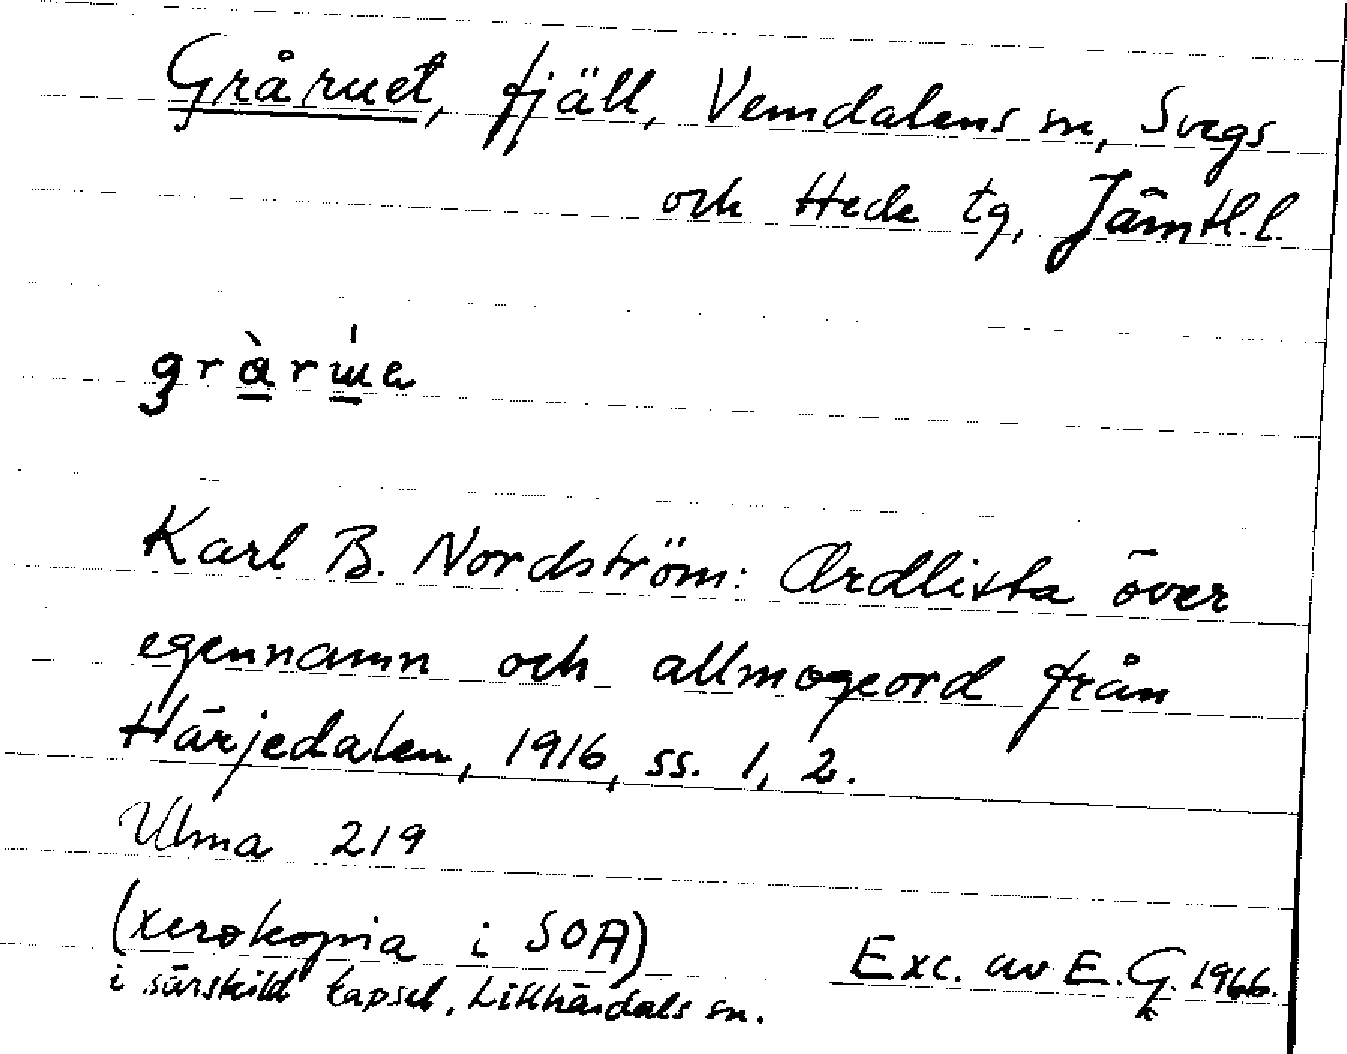 Gråruet, fjäll, Vemdalens sn, Svegs
och Hede tg, Jämtl.l.
Karl B. Nordström: Ordlista över
egennamn och allmogeord från
Härjedalen, 1916, ss. 1, 2.
Ulma 219
(xerokopia i SOA)
i särskild kapsel, Lillhärdals sn.
Exc. av E. G. 1966.